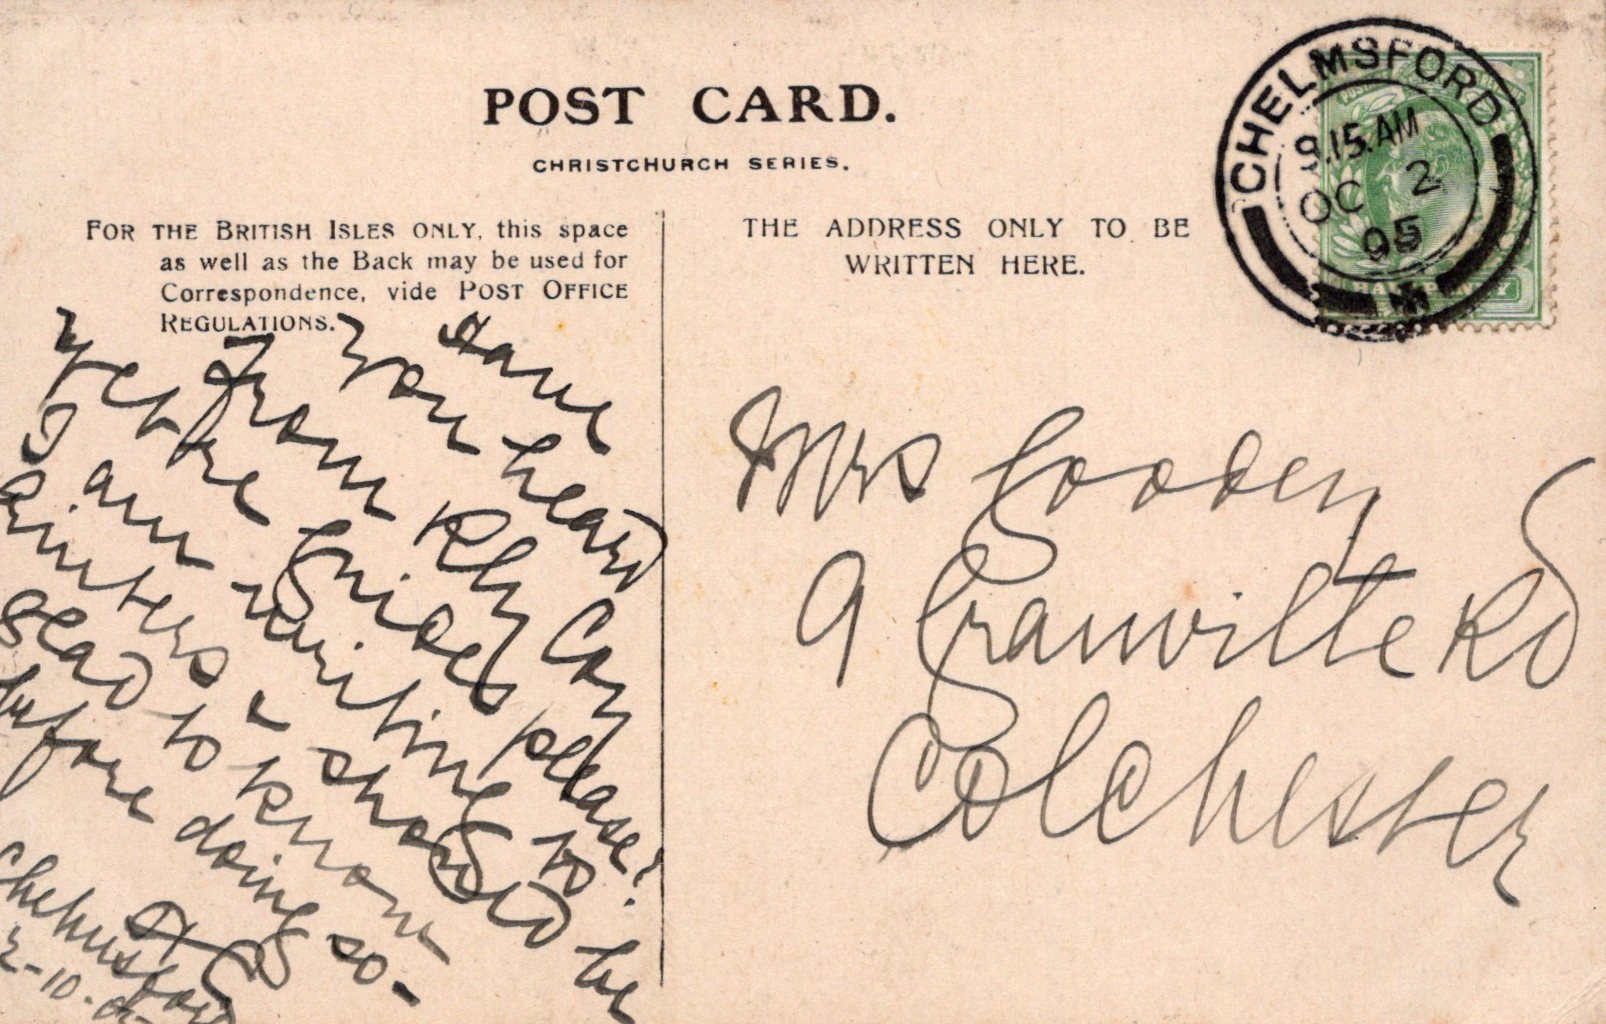 POST CARD.
CHRISTCHURCH SERIES.
FOR THE BRITISH ISLES ONLY, this space
as well as the Back may be used for
Correspondence, vide POST OFFICE
REGULATIONS.
THE ADDRESS ONLY TO BE
WRITTEN HERE.
CHELMSFORD
9.15.AM
OC 2
05
Have
you heard
from Rly Coy
yet re Guides please?
I am writing to
printers & should be
glad to know
before doing so-
Chelmsford
2-10-05
Mrs Goodey
9 Granville Rd
Colchester